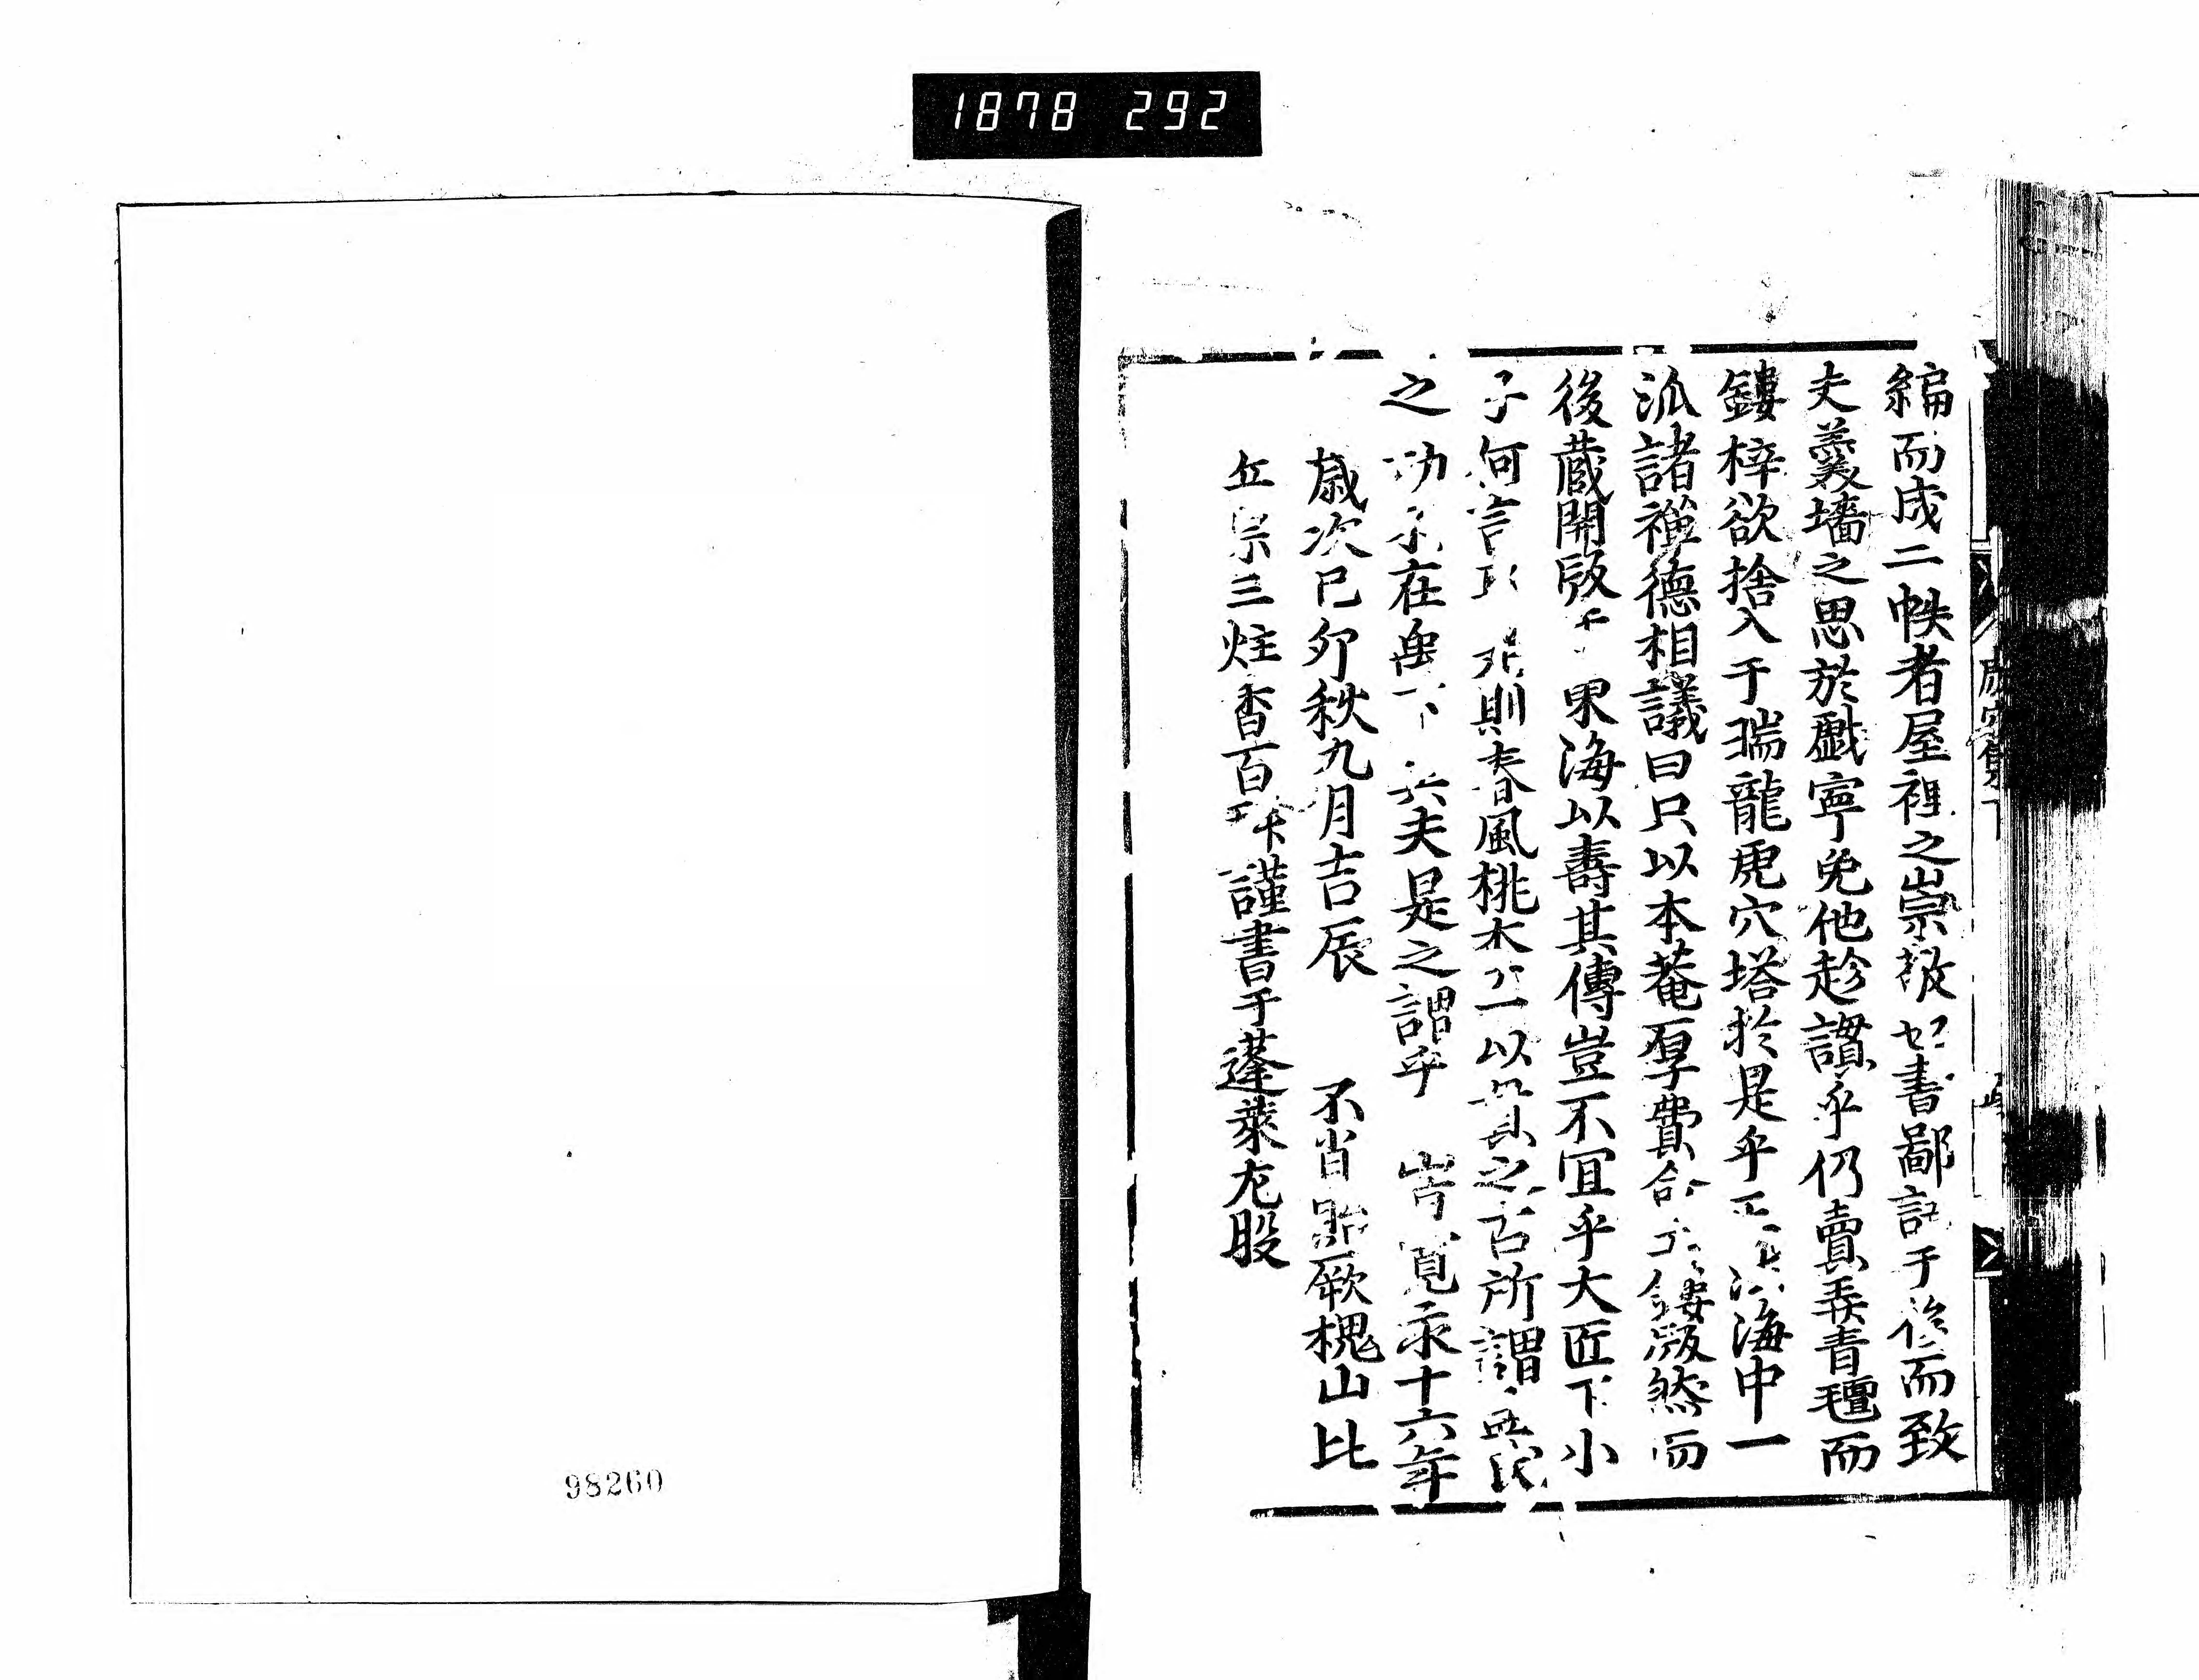 1878 292
編而成二帙者屋裡之崇敬也書鄙語于後而致
夫羹墻之思於戲寧免他趁讃乎仍賣弄青氊而
鏤梓欲捨入于瑞龍虎穴塔於是乎 海中一
派諸禪德相議曰只以本菴厚費命工鏤版然而
後蔵開版于 東海以壽其傳豈不冝乎大匠下小
子何言 則春風桃 一以貫之古所謂
之功不在禹下 夫是之謂乎 寛永十六年
歳次己卯秋九月吉辰 不肖 厥槐山比
丘宗三炷香百拜謹書于蓬萊左股
98260